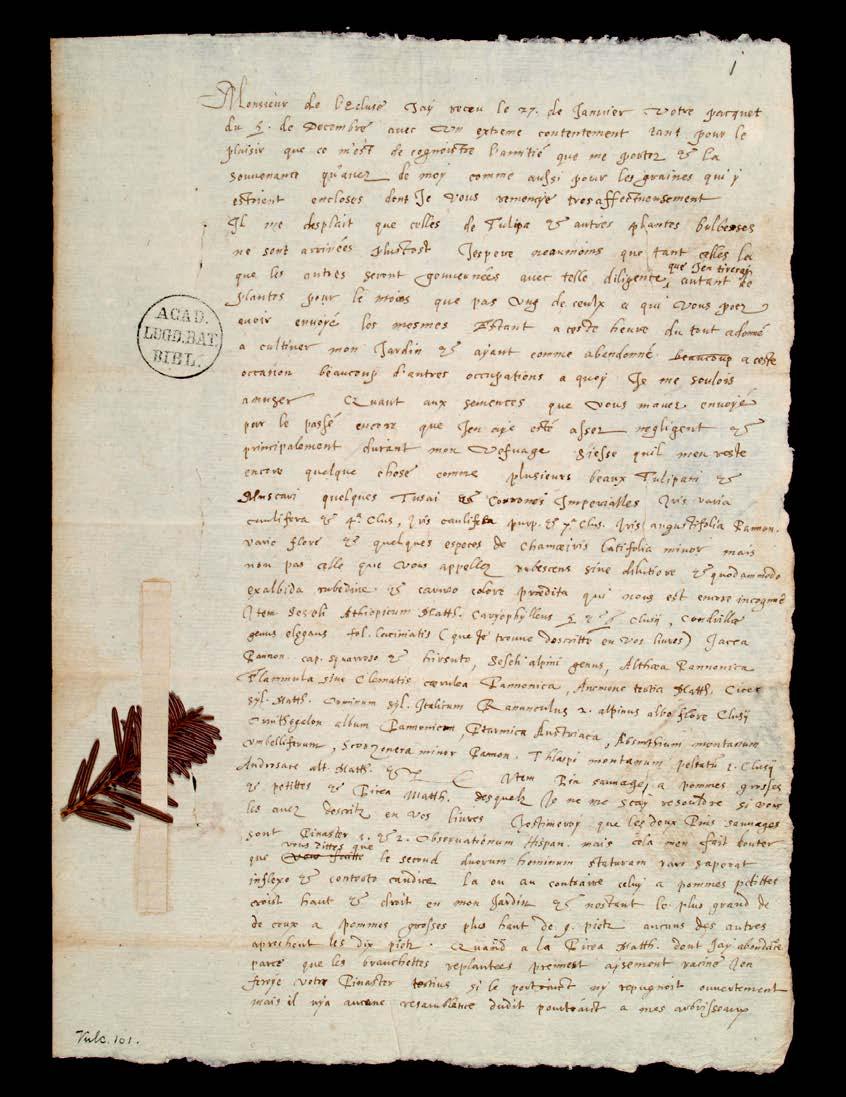 1
Monsieur de l'Ecluse Jay receu le 27. de Janvier Votre pacquet
du 5. de Decembre avec Un extreme contentement tant pour le
plaisir que ce m'est de cognoistre l'amitié que me portez et la
souvenance qu'avez de moy comme aussi pour les graines qui y
estoient encloses dont Je Vous remercye tresaffectueusement
Il me desplait que celles de Tulipa et autres plantes bulbeuses
ne sont arrivées plustost Jespere neaumoins que tant celles la
que les autres seront gouvernées avec telle diligence, que Jen tireray autant de
plantes pour le moins que pas Ung de ceulx a qui Vous poez
avoir envoyé les mesmes Estant a ceste heure du tout adonné
a cultiver mon Jardin et ayant comme abendonné beaucoup a ceste
occasion beaucoup d'autres occupations a quoy Je me soulois
amuser Quant aux semences que Vous mavez envoyé
par le passé encore que Jen aye esté assez negligent et
principalement durant mon Vefvage Siesse quil men reste
encore quelque chose comme plusieurs beaux Tulipani et
Muscari quelques Tusai et Couronnes Imperialles Iris varia
caulifera et 4ª Clus, Iris caulifera purp. et 7ª Clus. Iris angustifolia Pannon.
vario flore et quelques especes de Chamæiris latifolia minor mais
non pas celle que Vous appellez rubescens sive dilutiore et quodammodo
exalbida rubedine et caruvo colore prædita qui nous est encore incogneue
Item Seseli Æthiopicum Matth. Caryophylleus 5 et 6 Clusij, Condrillæ
genus elegans fol. laciniatis (que Je trouve descritte en vos livres) Jacea
Pannon. cap. squarroso et hirsuto, Seseli alpini genus, Althæa Pannonica
Flammula sive Clematis cærulea Pannonica, Anemone tertia Matth. Cicer
syl. Matth. Orminum syl. Italicum Ranunculus 2. alpinus albo flore Clusij
Ornithogalon album Pannonicum Ptarmica Austriaca, Absinthium montanum
umbelliferum, Scorzonera minor Pannon. Thlaspi montanum peltatum 2. Clusij
Androsace alt. Matth. etc Item Pin sauvage, a pommes grosses
et petittes et Picea Matth. desquelz Je ne me scay resouldre si vous
les avez descritz en vos livres Jestimeroy que les deux Pins sauvages
sont Pinaster 1. et 2. Observationum Hispan. mais cela men fait douter
que vous dittes que le second duorum hominum staturam raro superat
inflexo et contorto caudice la ou au contraire celuy a pommes petittes
croist haut et droit en mon Jardin et nostant le plus grand de
de ceux a pommes grosses plus haut de 9. piedz aucuns des autres
aprochent les dix piedz. Quand a la Picea Matth. dont Jay abondance
parce que les branchettes replantees prennent aysement racine Jen
feroye votre Pinaster tertius si le portraict ny repugnoit ouvertement
mais il nya aucune resamblance dudit pourtraict a mes arbrisseaux
ACAD.
LUGD. BAT.
BIBL.
Vulc. 101.